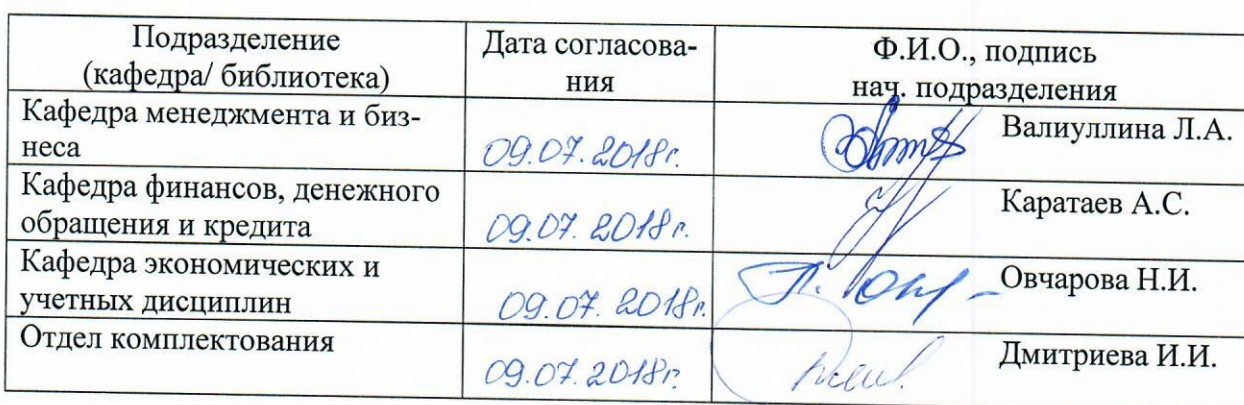 Подразделение
(кафедра/ библиотека)
Дата согласова-
ния
Ф.И.О., подпись
нач. подразделения
Кафедра менеджмента и биз-
неса
09.07.2018г.
Валиуллина Л.А.
Кафедра финансов, денежного
обращения и кредита
09.07.2018г.
Каратаев А.С.
Кафедра экономических и
учетных дисциплин
09.07.2018г.
Овчарова Н.И.
Отдел комплектования
09.07.2018г.
Дмитриева И.И.